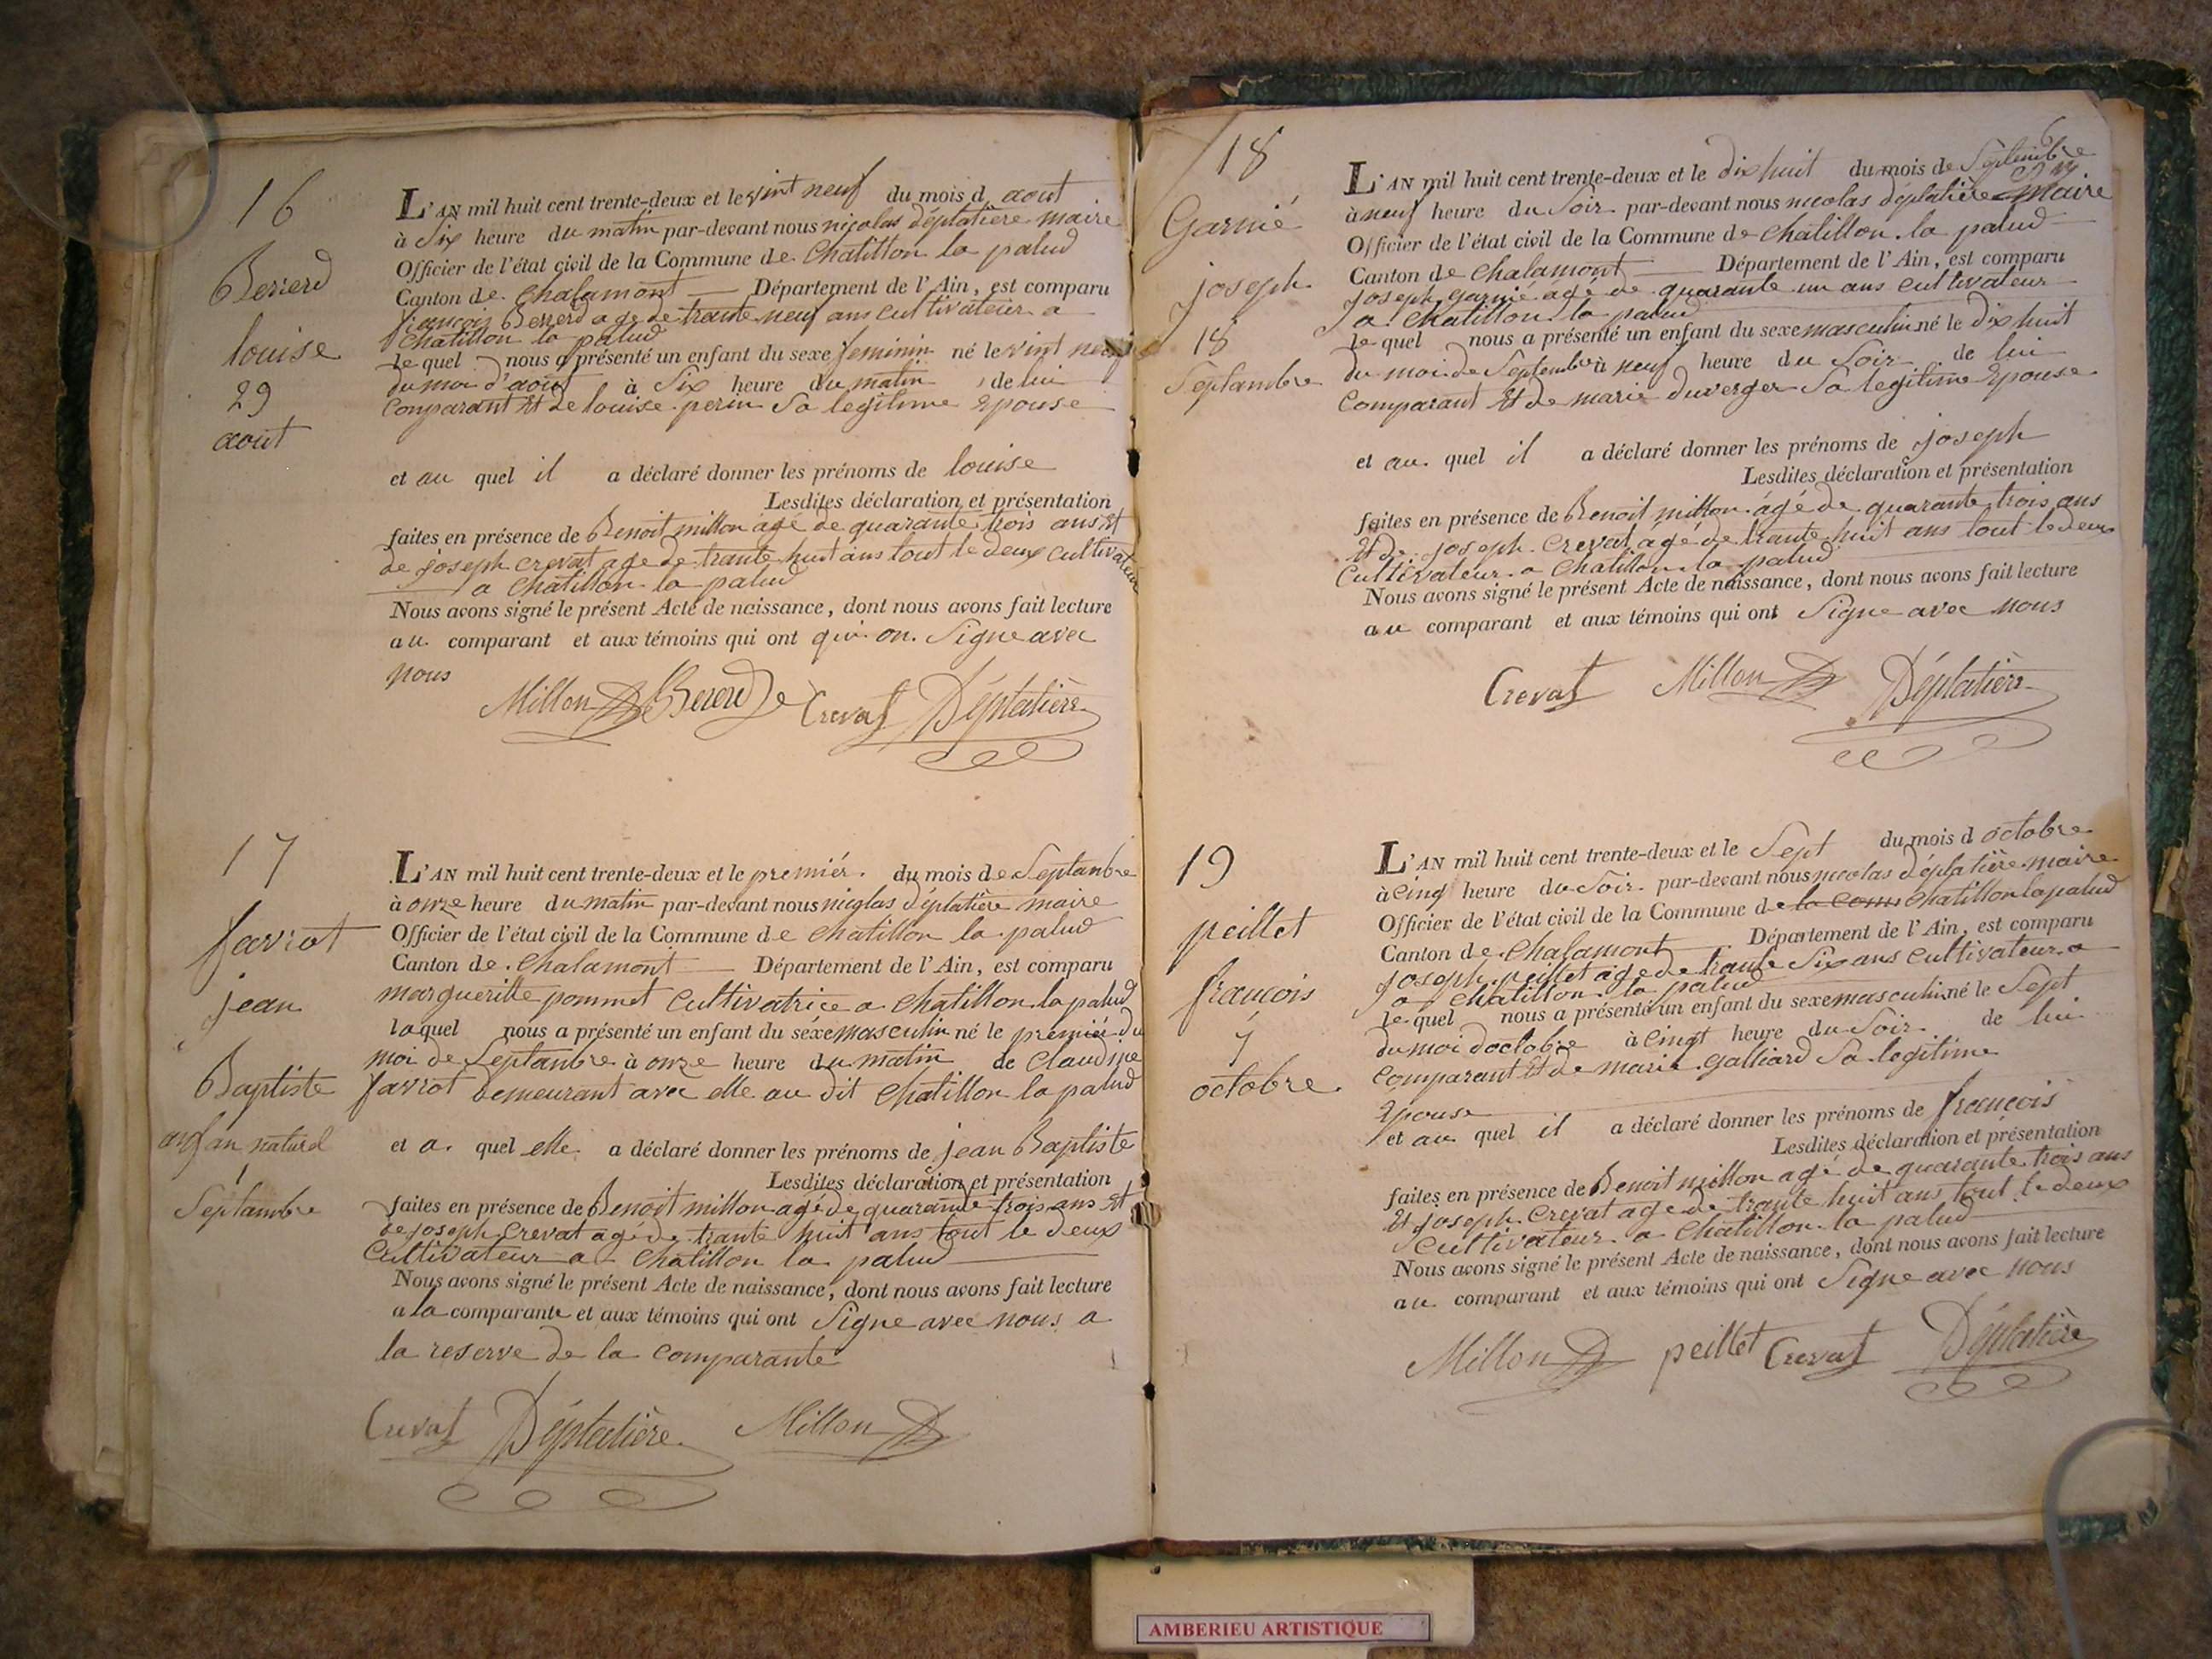 16
Berrerd
louise
29
aout
L'AN mil huit cent trente-deux et le vint neuf du mois d aout
à Six heure du matin par-devant nous nicolas déplatière maire
Officier de l'état civil de la Commune de Chatillon la palud
Canton de Chalamont Département de l'Ain, est comparu
françois Berrerd age de trante neuf ans cultivateur a
Chatillon la palud
le quel nous a présenté un enfant du sexe feminin né le vint neuf
du moi d'aout à Six heure du matin de lui
comparant Et de louise perin Sa legitime Epouse
et au quel il a déclaré donner les prénoms de louise
Lesdites déclaration et présentation
faites en présence de Benoit millon agé de quarante trois ans Et
de joseph crevat age de trante huit ans tout le deux cultivateur
a Chatillon la palud
Nous avons signé le présent Acte de naissance, dont nous avons fait lecture
au comparant et aux témoins qui ont qui on Signe avec
nous
Millon Berrerd Crevat Déplatière
17
favrot
jean
Baptiste
anfan naturel
1
Septambre
L'AN mil huit cent trente-deux et le premiér du mois de Septambre
à onze heure du matin par-devant nous nicolas déplatière maire
Officier de l'état civil de la Commune de Chatillon la palud
Canton de Chalamont Département de l'Ain, est comparu
marguerilte pommet Cultivatrice a Chatillon la palud
laquel nous a présenté un enfant du sexe masculin né le premiér du
moi de Septambre à onze heure du matin de Claudine
favrot demeurant avec elle au dit Chatillon la palud
et a quel elle a déclaré donner les prénoms de jean Baptiste
Lesdites déclaration et présentation
faites en présence de Benoit millon agé de quarante trois ans Et
de joseph Crevat agé de trante huit ans tout le deux
Cultivateur a Chatillon la palud
Nous avons signé le présent Acte de naissance, dont nous avons fait lecture
a la comparante et aux témoins qui ont Signe avec nous a
la reserve de la comparante
Crevat Déplatière Millon
6
18
Garnié
joseph
18
Septambre
L'AN mil huit cent trente-deux et le dix huit du mois de Septembre
à neuf heure du Soir par-devant nous nicolas déplatière maire
Officier de l'état civil de la Commune de Chatillon la palud
Canton de Chalamont Département de l'Ain, est comparu
joseph garnié agé de quarante un ans cultivateur
a Chatillon la palud
le quel nous a présenté un enfant du sexe masculin né le dix huit
du moi de Septembre à neuf heure du Soir de lui
comparant Et de marie duverger Sa legitime Epouse
et au quel il a déclaré donner les prénoms de joseph
Lesdites déclaration et présentation
faites en présence de Benoit millon agé de quarante trois ans
Et de joseph Crevat agé de trante huit ans tout le deux
Cultivateur a Chatillon la palud
Nous avons signé le présent Acte de naissance, dont nous avons fait lecture
au comparant et aux témoins qui ont Signe avec nous
Crevat Millon Déplatière
19
peillet
francois
7
octobre
L'AN mil huit cent trente-deux et le Sept du mois d octobre
à Cinq heure du Soir par-devant nous nicolas déplatière maire
Officier de l'état civil de la Commune de la com Chatillon la palud
Canton de Chalamont Département de l'Ain, est comparu
joseph peillet age de trante Six ans cultivateur a
a Chatillon la palud
le quel nous a présenté un enfant du sexe masculin né le Sept
du moi doctobre à Cinqt heure du Soir de lui
comparant Et de marie galliard Sa legitime
Epouse
et au quel il a déclaré donner les prénoms de francois
Lesdites déclaration et présentation
faites en présence de Benoit millon agé de quarante trois ans
Et joseph Crevat age de trante huit ans tout le deux
Cultivateur a Chatillon la palud
Nous avons signé le présent Acte de naissance, dont nous avons fait lecture
au comparant et aux témoins qui ont Signe avec nous
Millon peillet Crevat Déplatière
AMBERIEU ARTISTIQUE